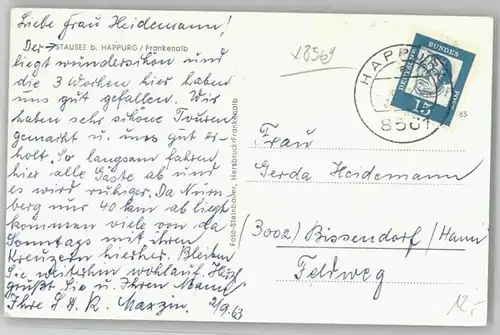 Liebe Frau Heidemann!
Der → STAUSEE b. HAPPURG / Frankenalb
liegt wunderschön und
die 3 Wochen hier haben
uns gut gefallen. Wir
haben sehr schöne Touren
gemacht u. uns gut er-
holt. So langsam fahren
hier alle Gäste ab und
es wird ruhiger. Da Nürn
berg nur 40 km ab liegt
kommen viele von da
Sonntags mit ihren
Kreuzern hierher. Bleiben
Sie weiterhin wohlauf. Herzl
grüßt Sie u. Ihren Mann
Ihre L. & R. 2/9.63
Foto-Steinbauer, Hersbruck/Frankenalb
x8569
HAPPURG
8561
DEUTSCHE BUNDES POST
15
63
Frau
Gerda Heidemann
(3002) Bissendorf/Hann
Feldweg
12,-